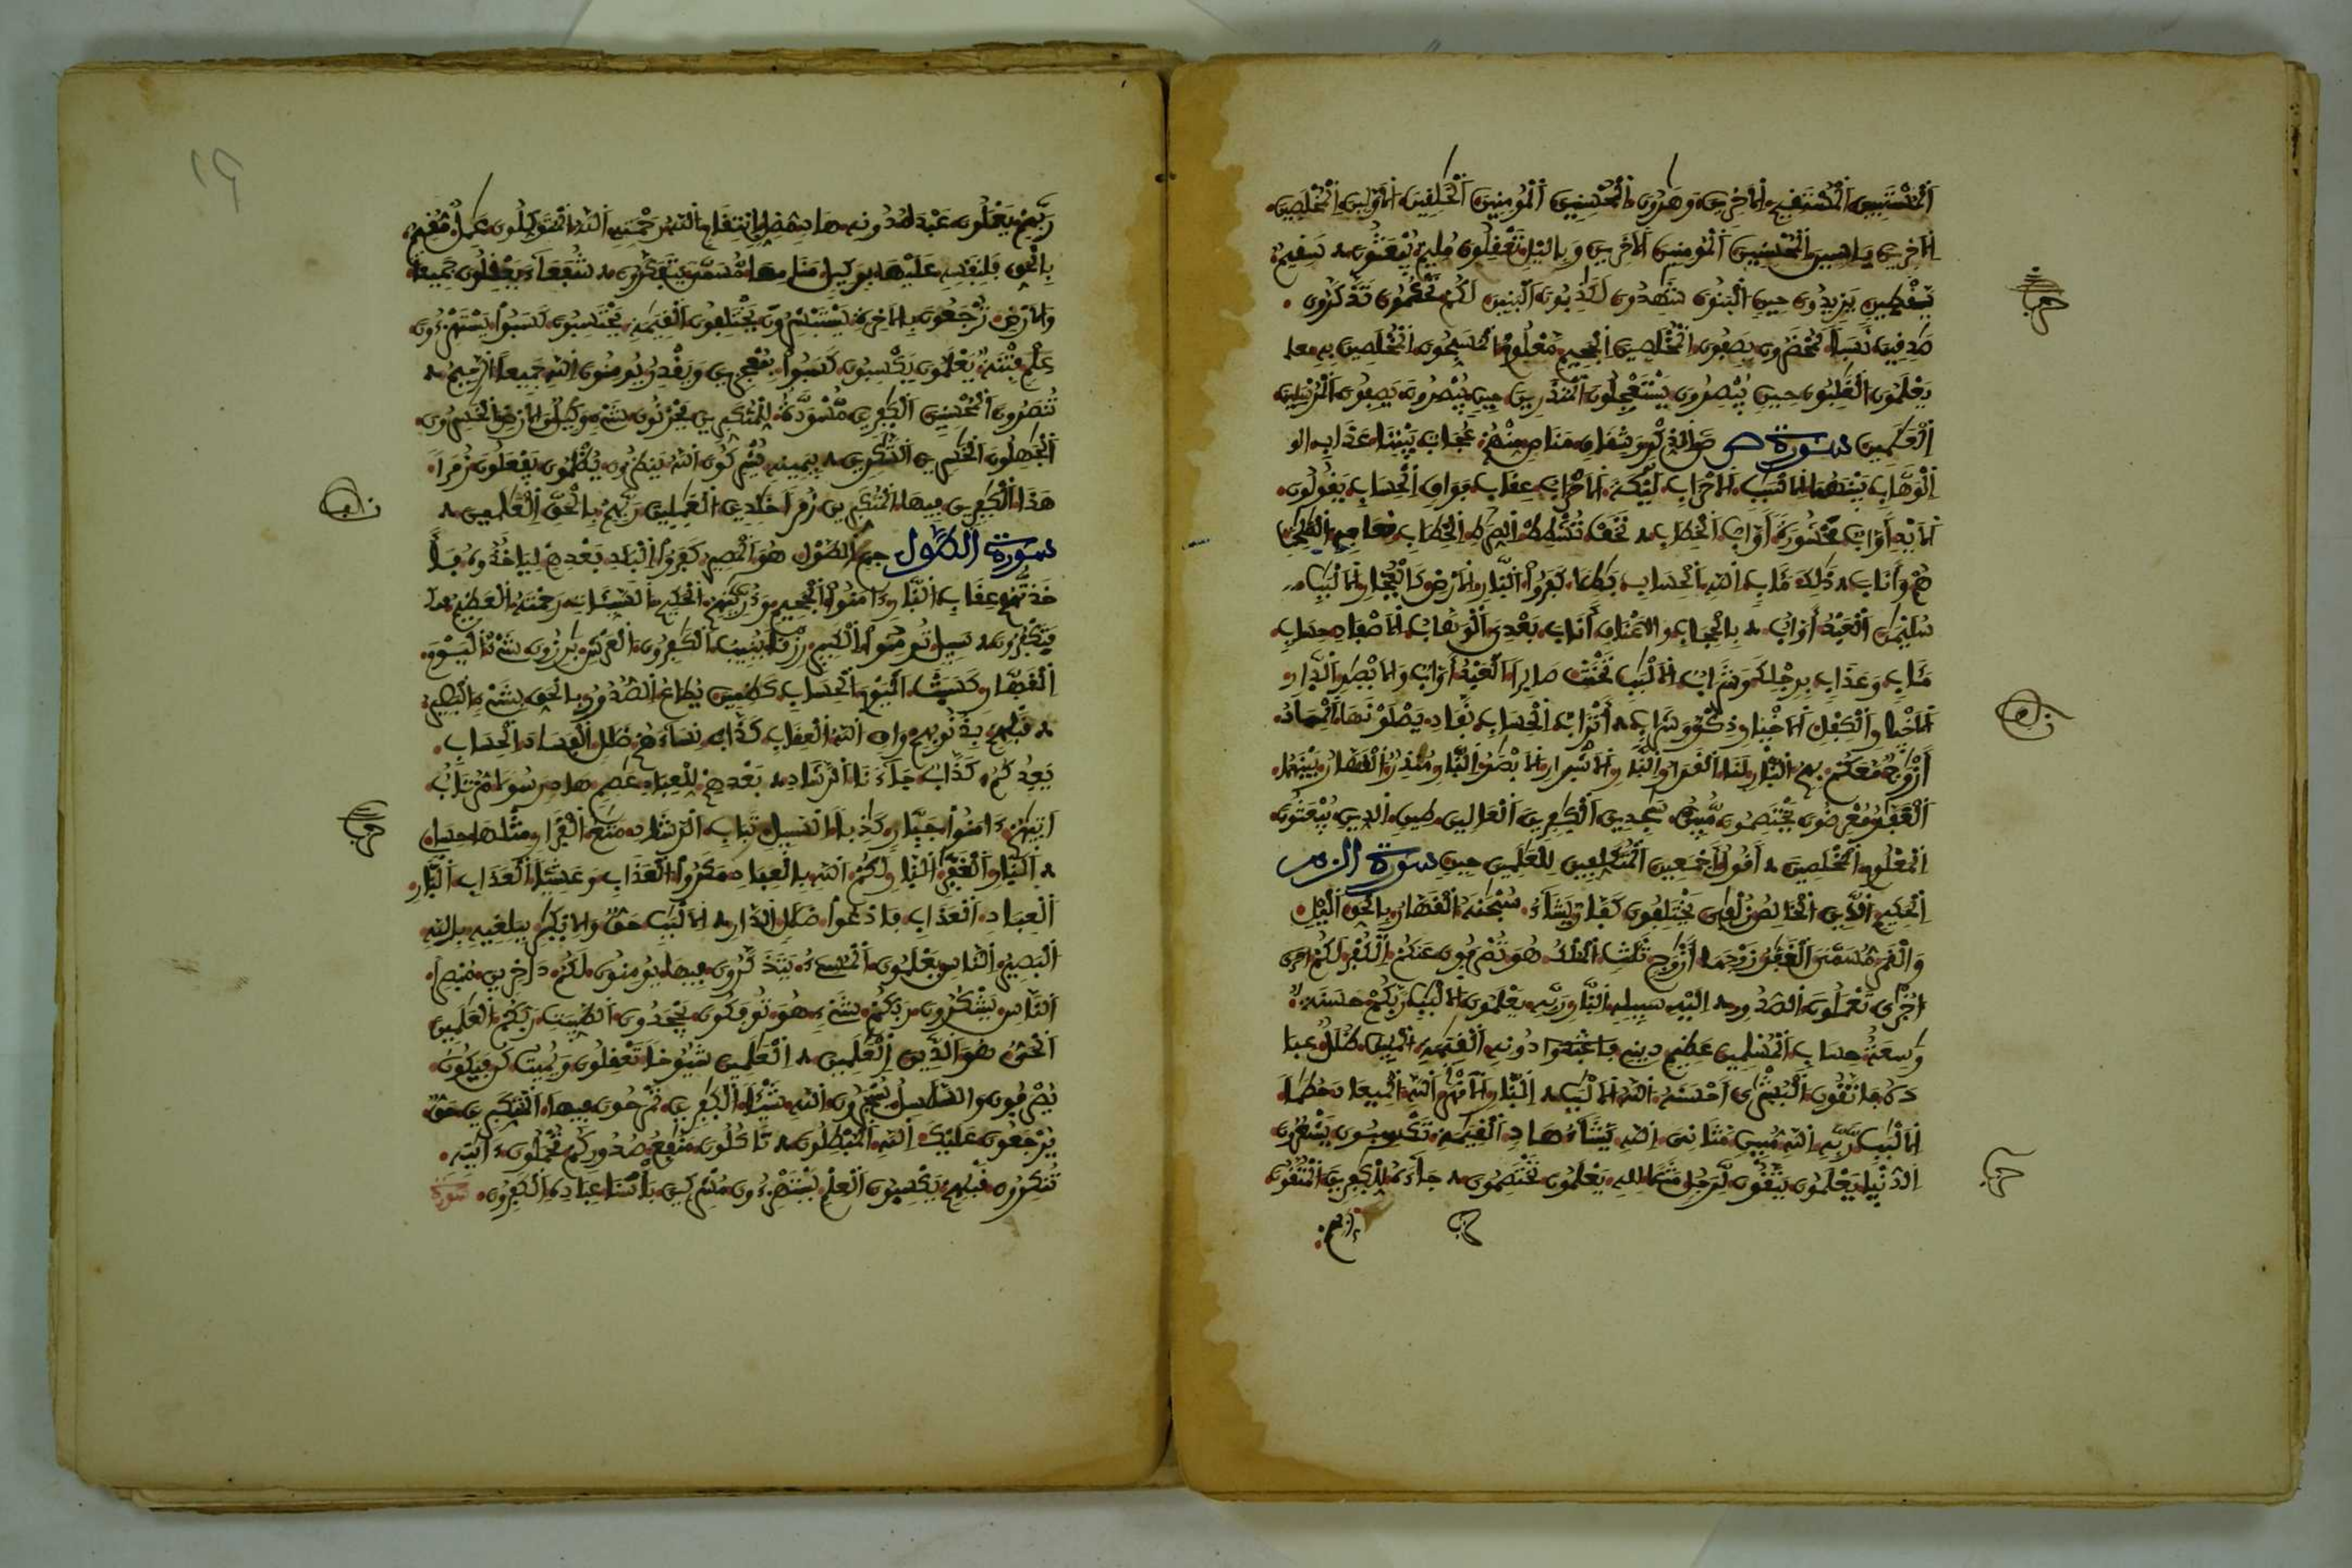 اَلْمُسْتَبِينَ اَلْمُسْتَفِيمَ اَلَاخِرِينَ وَهَرُونَ اَلْمُحْسِنِينَ اَلْمُومِنِينَ اَلْخَلِفِينَ اَلَاوَّلِينَ اَلْمُخْلَصِينَ
اَلَاخِرِينَ يَاسِينَ اَلْمُحْسِنِينَ اَلْمُومِنِينَ اَلَاخَرِينَ وَبِالَيْلِ تَعْفِلُونَ مُلِيمٌ يُبْعَثُونَ سَفِيمٌ
يَفْطِينِ يَزِيدُونَ حِينِ اَلْبَنُونَ شَهِدُونَ لَكَذِبُونَ اَلْبَنِينَ لَكُمْ تَحْكُمُونَ تَذَّكَّرُونَ
صَدِفِينَ نَسَباً لَمُحْضَرُونَ يَصِفُونَ اَلْمُخْلَصِينَ اَلْجَحِيمِ مَّعْلُومٌ اَلْمُسَبِّحُونَ اَلْمُخْلَصِينَ بِهِ
يَعْلَمُونَ اَلْغَلِبُونَ حِينٍ يُبْصِرُونَ يَسْتَعْجِلُونَ اَلْمُنذَرِينَ حِينٍ يُبْصِرُونَ يَصِفُونَ اَلْمُرْسَلِينَ
اَلْعَلَمِينَ سورة ص صَ وَالذِّكْرِ وَشِفَاقٍ مَنَاصٍ مِنْهُمْ عُجَابٌ بَيْنِنَا عَذَابِ
اَلْوَهَّابِ بَيْنَهُمَا اَلَاسْبَبِ اَلَاحْزَابِ لَيْكَةَ اَلَاحْزَابُ عِفَابِ فَوَاقٍ اَلْحِسَابِ يَفُولُونَ
اَلَايْدِ أَوَّابٌ مَحْشُورَةً أَوَّابٌ اَلْخِطَابِ تَخَفْ تُشْطِطْ اَلصِّرَاطِ اَلْخِطَابِ نِعَاجِهِ
هُمْ وَأَنَابَ ذَلِكَ مَـَٔابٍ اَللَّهِ اَلْحِسَابِ بَطِلًا كَفَرُوا اَلنَّارِ اَلَارْضِ كَالْفُجَّارِ اَلَالْبَبِ
سُلَيْمَنَ اَلْعَبْدُ أَوَّابٌ بِالْحِجَابِ وَالَاعْنَاقِ أَنَابَ بَعْدِيَ اَلْوَهَّابُ اَلَاصْفَادِ حِسَابٍ
مَـَٔابٍ وَعَذَابٍ بِرِجْلِكَ وَشَرَابٌ اَلَالْبَبِ تَحْنَثْ صَابِراً اَلْعَبْدُ أَوَّابٌ وَالَابْصَرِ اَلدَّارِ
اَلَاخْيَارِ وَالْكِفْلِ اَلَاخْيَارِ ذِكْرٌ وَشَرَابٍ أَتْرَابٌ اَلْحِسَابِ نَفَادٍ يَصْلَوْنَهَا اَلْمِهَادُ
أَزْوَجٌ مَّعَكُمْ بِهِمُ اَلنَّارِ لَنَا اَلْقَرَارُ اَلنَّارِ اَلَاشْرَارِ اَلَابْصَرُ اَلنَّارِ مُنذِرٌ اَلْفَهَّارُ بَيْنَهُمَا
اَلْغَفَّرُ مُعْرِضُونَ يَخْتَصِمُونَ مُّبِينٌ سَجِدِينَ اَلْكَفِرِينَ اَلْعَالِينَ طِينٍ اَلدِّينِ يُبْعَثُونَ
اَلْمَعْلُومِ اَلْمُخْلَصِينَ أَفُولُ أَجْمَعِينَ اَلْمُتَكَلِّفِينَ لِلْعَلَمِينَ حِينٍ سورة الزمر
اَلْحَكِيمِ اَلدِّينَ اَلْخَالِصُ زُلْفَى يَخْتَلِفُونَ كَفَّارٌ يَشَآءُ سُبْحَنَهُ اَلْفَهَّارُ بِالْحَقِّ اَلَيْلِ
وَالْفَمَرَ مُّسَمًّى اَلْغَفَّرُ زَوْجَهَا أَزْوَجٍ ثَلَثٍ اَلْمُلْكُ هُوَ تُصْرَفُونَ عَنكُمْ اَلْكُفْرَ لَكُمْ
أُخْرَى تَعْمَلُونَ اَلصُّدُورِ إِلَيْهِ سَبِيلِهِ اَلنَّارِ رَبِّهِ يَعْلَمُونَ اَلَالْبَبِ رَبَّكُمْ حَسَنَةٌ
وَسِعَةٌ حِسَابٍ اَلْمُسْلِمِينَ عَظِيمٍ دِينِي فَاعْبُدُوا دُونِهِ اَلْفِيَمَةِ اَلْمُبِينُ ظُلَلٌ عِبَا
دَهُ فَاتَّقُونِ اَلْبُشْرَى أَحْسَنَهُ اَللَّهُ اَلَالْبَبِ اَلنَّارِ اَلَانْهَرُ اَللَّهِ اَلْمِيعَادَ حُطَماً
اَلَالْبَبِ رَّبِّهِ اَللَّهِ مُبِينٍ مَّثَانِيَ اَللَّهِ يَّشَآءُ هَادٍ اَلْفِيَمَةِ تَكْسِبُونَ يَشْعُرُونَ
اَلدُّنْيَا يَعْلَمُونَ يَتَّقُونَ لِّرَجُلٍ مَثَلًا لِلهِ يَعْلَمُونَ تَخْتَصِمُونَ جَآءَهُ لِّلْكَفِرِينَ اَلْمُتَّقُونَ
رَبِّهِمْ يَعْمَلُونَ عَبْدَهُ دُونِهِ هَادٍ مُّضِلٍّ اِنتِفَامٍ اَللَّهُ رَحْمَتِهِ اَللَّهُ اَلْمُتَوَكِّلُونَ عَمِلٌ مُّفِيمٌ
بِالْحَقِّ فَلِنَفْسِهِ عَلَيْهَا بِوَكِيلٍ مَنَامِهَا مُّسَمًّى يَتَفَكَّرُونَ شُفَعَآءَ يَعْفِلُونَ جَمِيعاً
وَالَارْضِ تُرْجَعُونَ بِالَاخِرَةِ يَسْتَبْشِرُونَ يَخْتَلِفُونَ اَلْفِيَمَةِ يَحْتَسِبُونَ كَسَبُوا يَسْتَهْزِءُونَ
عِلْمٍ فِتْنَةٌ يَعْلَمُونَ يَكْسِبُونَ كَسَبُوا بِمُعْجِزِينَ وَيَفْدِرُ يُومِنُونَ اَللَّهِ جَمِيعاً اَلرَّحِيمُ
تُنصَرُونَ اَلْمُحْسِنِينَ اَلْكَفِرِينَ مُّسْوَدَّةٌ لِلْمُتَكَبِّرِينَ يَحْزَنُونَ شَيْءٍ وَكِيلٌ وَالَارْضِ اَلْخَسِرُونَ
اَلْجَهِلُونَ اَلْخَسِرِينَ اَلشَّكِرِينَ بِيَمِينِهِ يُشْرِكُونَ اَللَّهُ يَنظُرُونَ يُظْلَمُونَ يَفْعَلُونَ زُمَراً
هَذَا اَلْكَفِرِينَ فِيهَا اَلْمُتَكَبِّرِينَ زُمَراً خَلِدِينَ اَلْعَمِلِينَ رَبِّهِمْ بِالْحَقِّ اَلْعَلَمِينَ
سورة الطول حم اَلطَّوْلِ هُوَ اَلْمَصِيرُ كَفَرُوا اَلْبِلَدِ بَعْدِهِمْ لِيَاخُذُوهُ
فَأَخَذتُّهُمْ عِفَابِ اَلنَّارِ ءَامَنُوا اَلْجَحِيمِ وَذُرِّيَّتِهِمْ اَلْحَكِيمُ اَلسَّيِّـَٔاتِ رَحِمْتَهُ اَلْعَظِيمُ
فَتَكْفُرُونَ سَبِيلٍ تُومِنُوا اَلْكَبِيرِ رِزْقاً يُنِيبُ اَلْكَفِرُونَ اَلْعَرْشِ بَرِزُونَ شَيْءٌ اَلْيَوْمَ
اَلْفَهَّارِ كَسَبَتْ اَلْيَوْمَ اَلْحِسَابِ كَظِمِينَ يُطَاعُ اَلصُّدُورُ بِالْحَقِّ بِشَيْءٍ اَلْبَصِيرُ
فَبْلِهِمْ بِذُنُوبِهِمْ وَاقٍ اَللَّهُ اَلْعِفَابِ كَذَّابٌ نِسَآءَهُمْ ضَلَلٍ اَلْفَسَادَ اَلْحِسَابِ
يَعِدُكُمْ كَذَّابٌ جَآءَنَا اَلرَّشَادِ بَعْدِهِمْ لِلْعِبَادِ عَاصِمٍ هَادٍ رَسُولًا مُّرْتَابٌ
أَتَيهُمْ ءَامَنُوا جَبَّارٍ كَذِباً اَلسَّبِيلِ تَبَابٍ اَلرَّشَادِ مَتَعٌ اَلْقَرَارِ مِثْلَهَا حِسَابٍ
اَلنَّارِ اَلْغَفَّرِ اَلنَّارِ لَكُمْ اَللَّهِ بِالْعِبَادِ مَكَرُوا اَلْعَذَابِ وَعَشِيّاً اَلْعَذَابِ اَلنَّارِ
اَلْعِبَادِ اَلْعَذَابِ فَادْعُوا ضَلَلٍ اَلدَّارِ اَلَالْبَبِ حَقٌّ وَالَابْكَرِ بِبَلِغِيهِ بِاللَّهِ
اَلْبَصِيرُ اَلنَّاسِ يَعْلَمُونَ اَلْمُسِيءُ تَتَذَكَّرُونَ فِيهَا يُومِنُونَ لَكُمْ دَاخِرِينَ مُبْصِراً
اَلنَّاسِ يَشْكُرُونَ رَبُّكُمْ شَيْءٍ هُوَ تُوفَكُونَ يَجْحَدُونَ اَلطَّيِّبَتِ رَبُّكُمْ اَلْعَلَمِينَ
اَلْحَيُّ هُوَ اَلدِّينَ اَلْعَلَمِينَ اَلْعَلَمِينَ شُيُوخاً تَعْفِلُونَ وَيُمِيتُ كُن فَيَكُونُ
يُصْرَفُونَ وَالسَّلَسِلُ يُسْجَرُونَ اَللَّهِ شَيْـٔاً اَلْكَفِرِينَ تَمْرَحُونَ فِيهَا اَلْمُتَكَبِّرِينَ حَقٌّ
يُرْجَعُونَ عَلَيْكَ اَللَّهِ اَلْمُبْطِلُونَ تَاكُلُونَ مَنَفِعُ صُدُورِكُمْ تُحْمَلُونَ ءَايَتِهِ
تُنكِرُونَ فَبْلِهِمْ يَكْسِبُونَ اَلْعِلْمِ يَسْتَهْزِءُونَ مُشْرِكِينَ بَأْسَنَا عِبَادِهِ اَلْكَفِرُونَ سورة